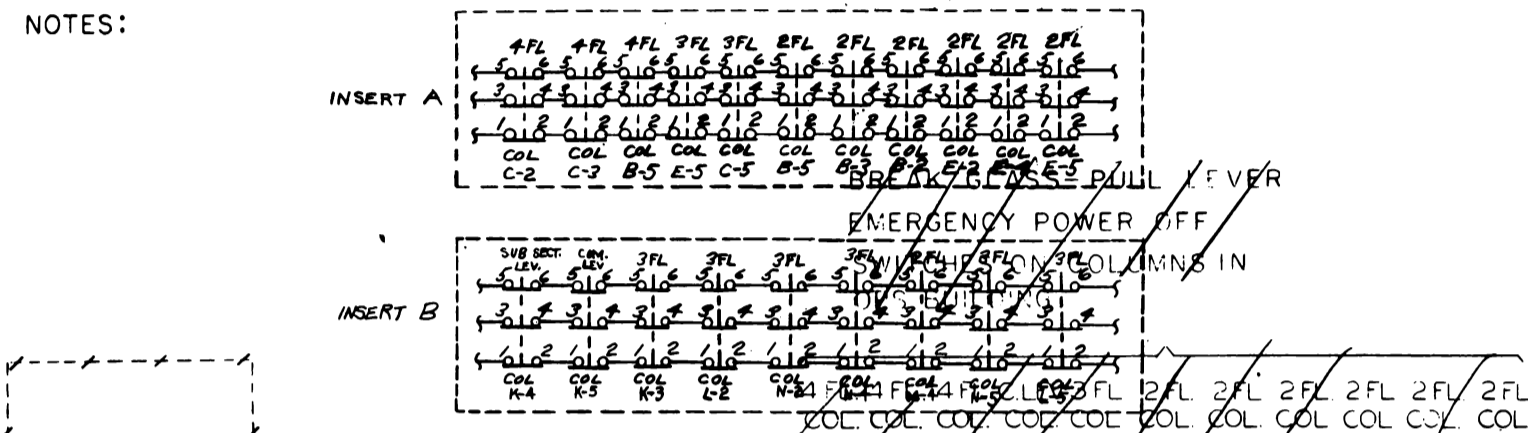 NOTES:
INSERT A
4FL 4FL 4FL 3FL 3FL 2FL 2FL 2FL 2FL 2FL 2FL
5 6 5 6 5 6 5 6 5 6 5 6 5 6 5 6 5 6 5 6 5 6
3 4 3 4 3 4 3 4 3 4 3 4 3 4 3 4 3 4 3 4 3 4
1 2 1 2 1 2 1 2 1 2 1 2 1 2 1 2 1 2 1 2 1 2
COL COL COL COL COL COL COL COL COL COL COL
C-2 C-3 B-5 E-5 C-5 B-5 B-3 B-2 E-2 E-5
BREAK GLASS-PULL LEVER
EMERGENCY POWER OFF
SWITCHES ON COLUMNS IN
BUILDING
INSERT B
SUB SECT. LEV. COM. LEV 3FL 3FL 3FL 3FL 2FL 3FL
5 6 5 6 5 6 5 6 5 6 5 6 5 6 5 6 5 6
3 4 3 4 3 4 3 4 3 4 3 4 3 4 3 4 3 4
1 2 1 2 1 2 1 2 1 2 1 2 1 2 1 2 1 2
COL COL COL COL COL COL COL COL COL
K-4 K-5 K-3 L-2 N-5 L-5
4 FL 4 FL 4 FL 3 FL 2 FL. 2 FL. 2 FL. 2 FL 2 FL 2 FL
COL. COL. COL. COL. COL COL. COL. COL COL COL. COL